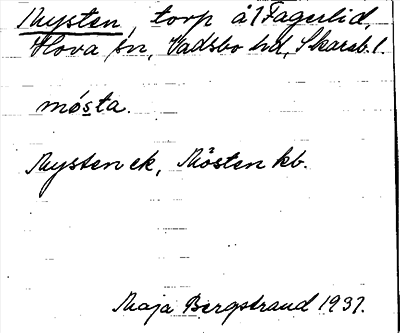 Mysten, torp å 1 Fagerlid,
Hova sn, Vadsbo hd, Skarab. l.
mó̤sta.
Mysten ek, Mösten kb.
Maja Bergstrand 1937.